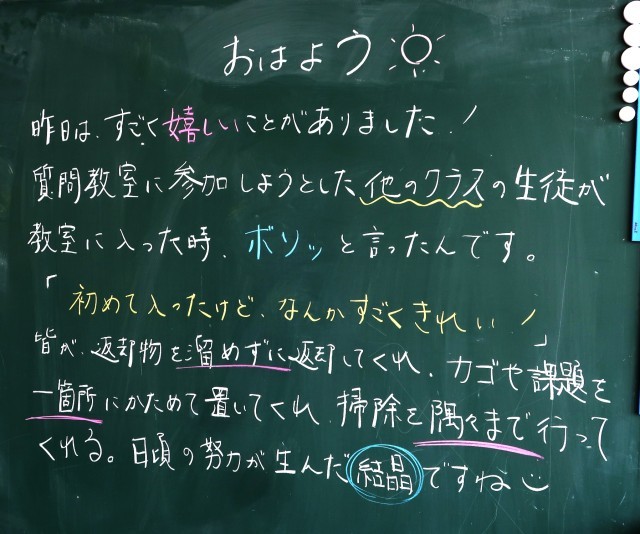 おはよう
昨日は、すごく嬉しいことがありました!
質問教室に参加しようとした他のクラスの生徒が
教室に入った時、ボソッと言ったんです。
「初めて入ったけど、なんかすごくきれい!」
皆が、返却物を溜めずに返却してくれ、カゴや課題を
一箇所にかためて置いてくれ、掃除を隅々まで行って
くれる。日頃の努力が生んだ結晶ですね